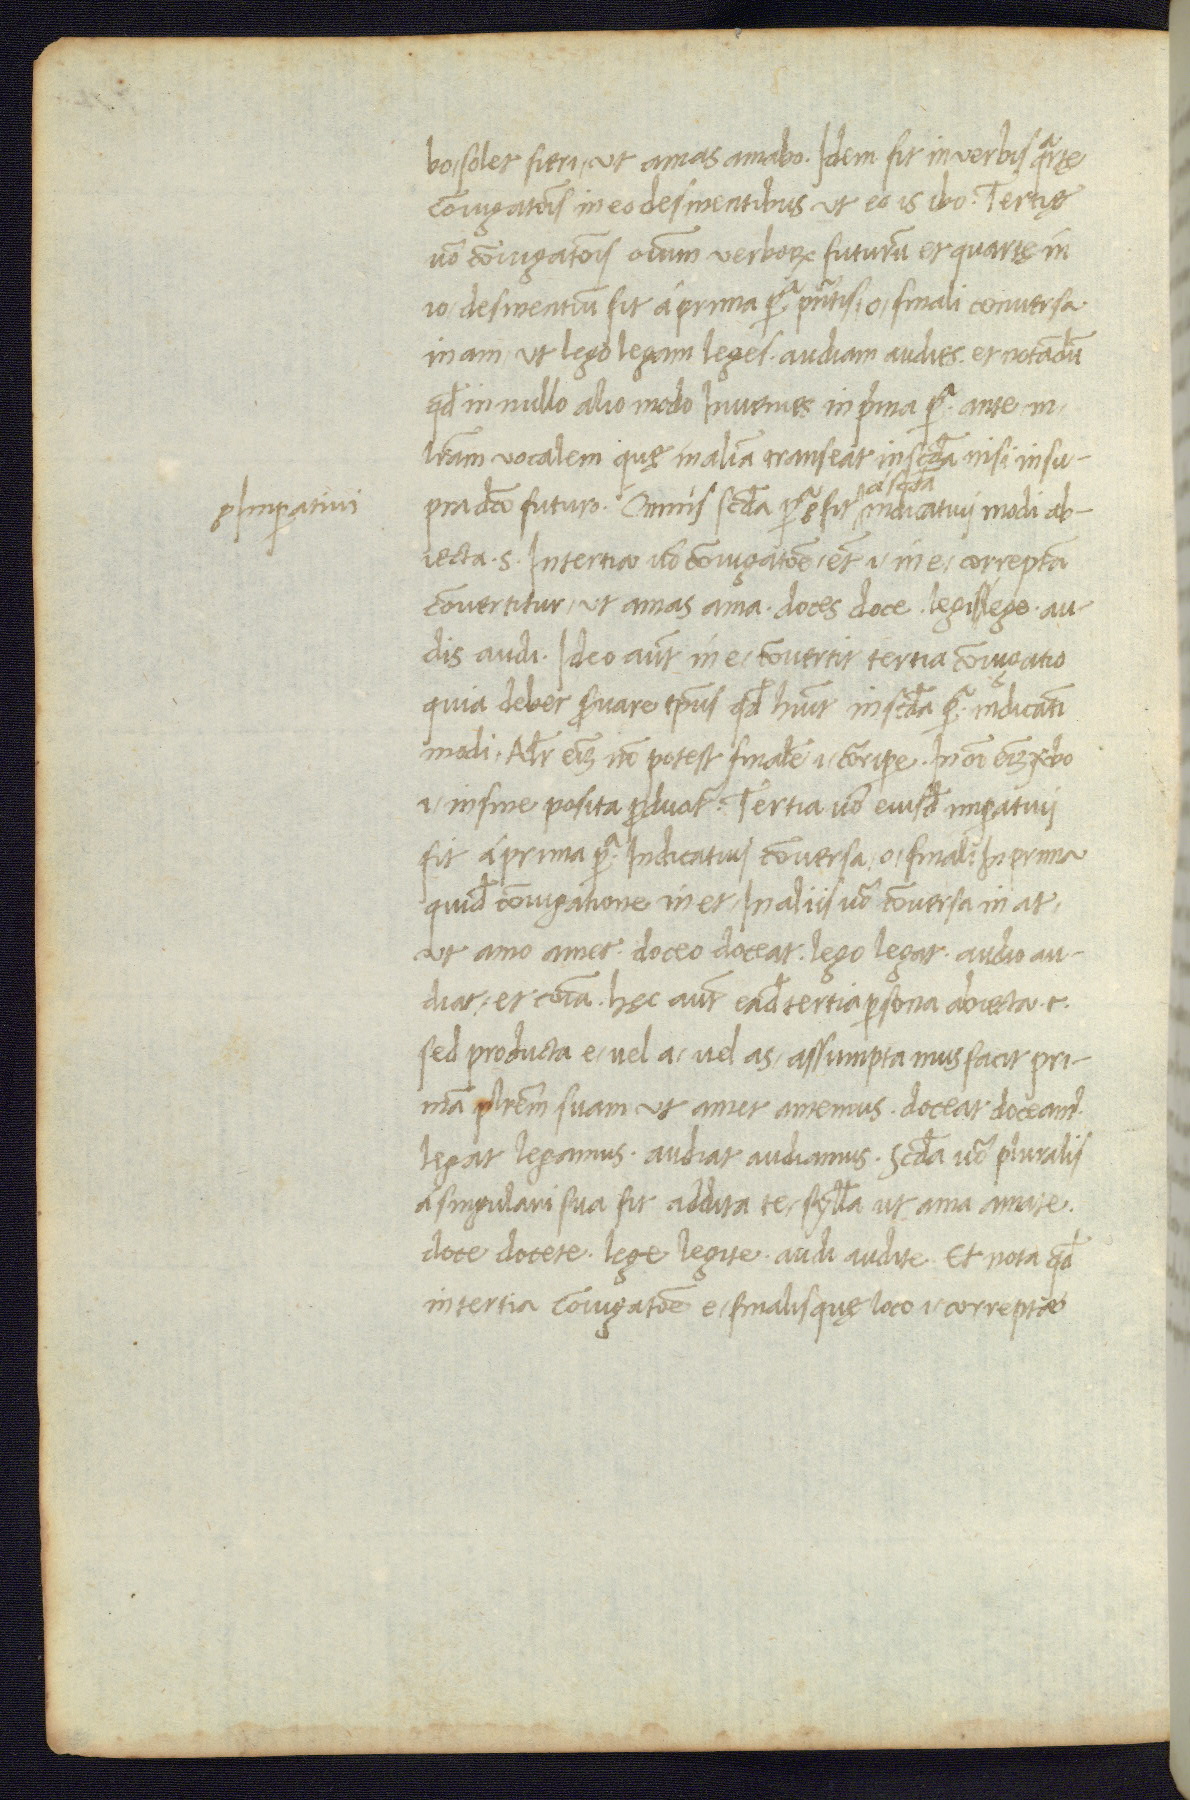 bo, solet fieri, ut amas amabo. Idem fit in verbis qᵃrtę
cōiugatōis in eo desinentibus ut eo is ibo. Tertię
uō cōiugatōis oīum verboꝝ futurū et quartę in
io, desinentiū fit á prima ꝑᵃ. pñtis, o, finali conuersa
in am, ut lego legam leges. audiam audies. et notādū
qd̄ in nullo alio modo Inuenies in prima ꝑᵃ. ante m,
lrām vocalem quę in aliā transeat in scdā nisi in su-
pradcō futuro. Omnis scdā ꝑᵃ g̊ fit a scdā indicatiui modi ab-
g̊ Imperatiui
iecta .s. In tertia uō cōiugatōe, et i, in e, correptā
conuertitur, ut amas ama. doces doce. legis lege. au-
dis audi. Ideo aūt in e, cōuertit tertia cōiugatio
quia debet seruare tp̄us qd̄ hūit in scdā ꝑᵃ. indicati
modi. Alr̄ eīꝫ nō potest finalē i, corripe. In oī eīꝫ ꝟbo
i, in fine posita producīt. Tertia uō eiusd̄ imꝑatiui
fit á prima ꝑᵃ. Indicatiui cōuersa, o, finali In prima
quid̄ cōiugatione in et, In aliis uō cōuersa in at,
ut amo amet. doceo doceat. lego legat. audio au-
diat, et cōia. hęc aūt ead̄ tertia persona abiecta .t.
sed producta e, uel a, uel as, assumpta mus facit pri-
mā plrēm suam ut amet amemus. doceat doceam̄.
legat legamus. audiat audiamus. Scdā uō pluralis
á singulari sua fit addita te, syllā ut ama amate.
doce docete. lege legite. audi audite. Et nota qd̄
in tertia cōiugatōe e, finalis quę loco i, correptæ